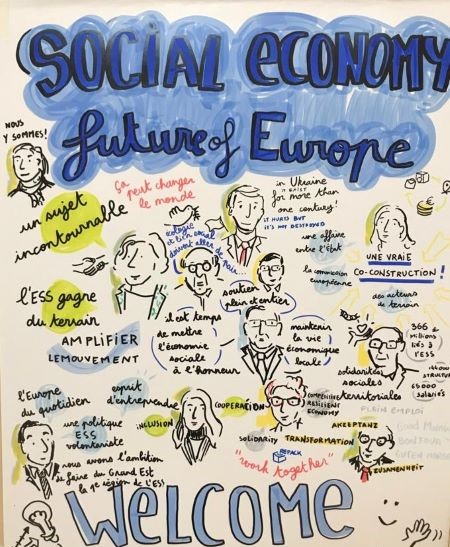 SOCIAL ECONOMY
future of Europe
NOUS
Y SOMMES!
ça
peut changer
le monde
in Ukraine
it exist
for more than
one century!
IT HURTS BUT
un sujet
incontournable
écologie
et bien social
doivent aller de pair
une affaire
entre l'État
la commission
européenne
UNE VRAIE
CO-CONSTRUCTION!
des acteurs
de terrain
l'ESS gagne
du terrain
AMPLIFIER
LE MOUVEMENT
soutien
plein et entier
il est temps
de mettre
l'économie
sociale
à l'honneur
maintenir
la vie
économique
locale
366
millions
liés à
l'ESS
STRUCTURES
65000
salariés
solidarités
sociales
territoriales
PLEIN EMPLOI
l'Europe
du quotidien
esprit
d'entreprendre
COOPERACIÓN
COMPETITIVE
RESILIENT
ECONOMY
AKZEPTANZ
Good Morning
BONJOUR
GUTEN MORGEN
une politique
ESS
volontariste
INCLUSION
solidarity
TRANSFORMATION
REPACK
"work together"
ZUSAMENHEIT
nous avons l'ambition
de faire du Grand Est
la 1e région de l'ESS
WELCOME